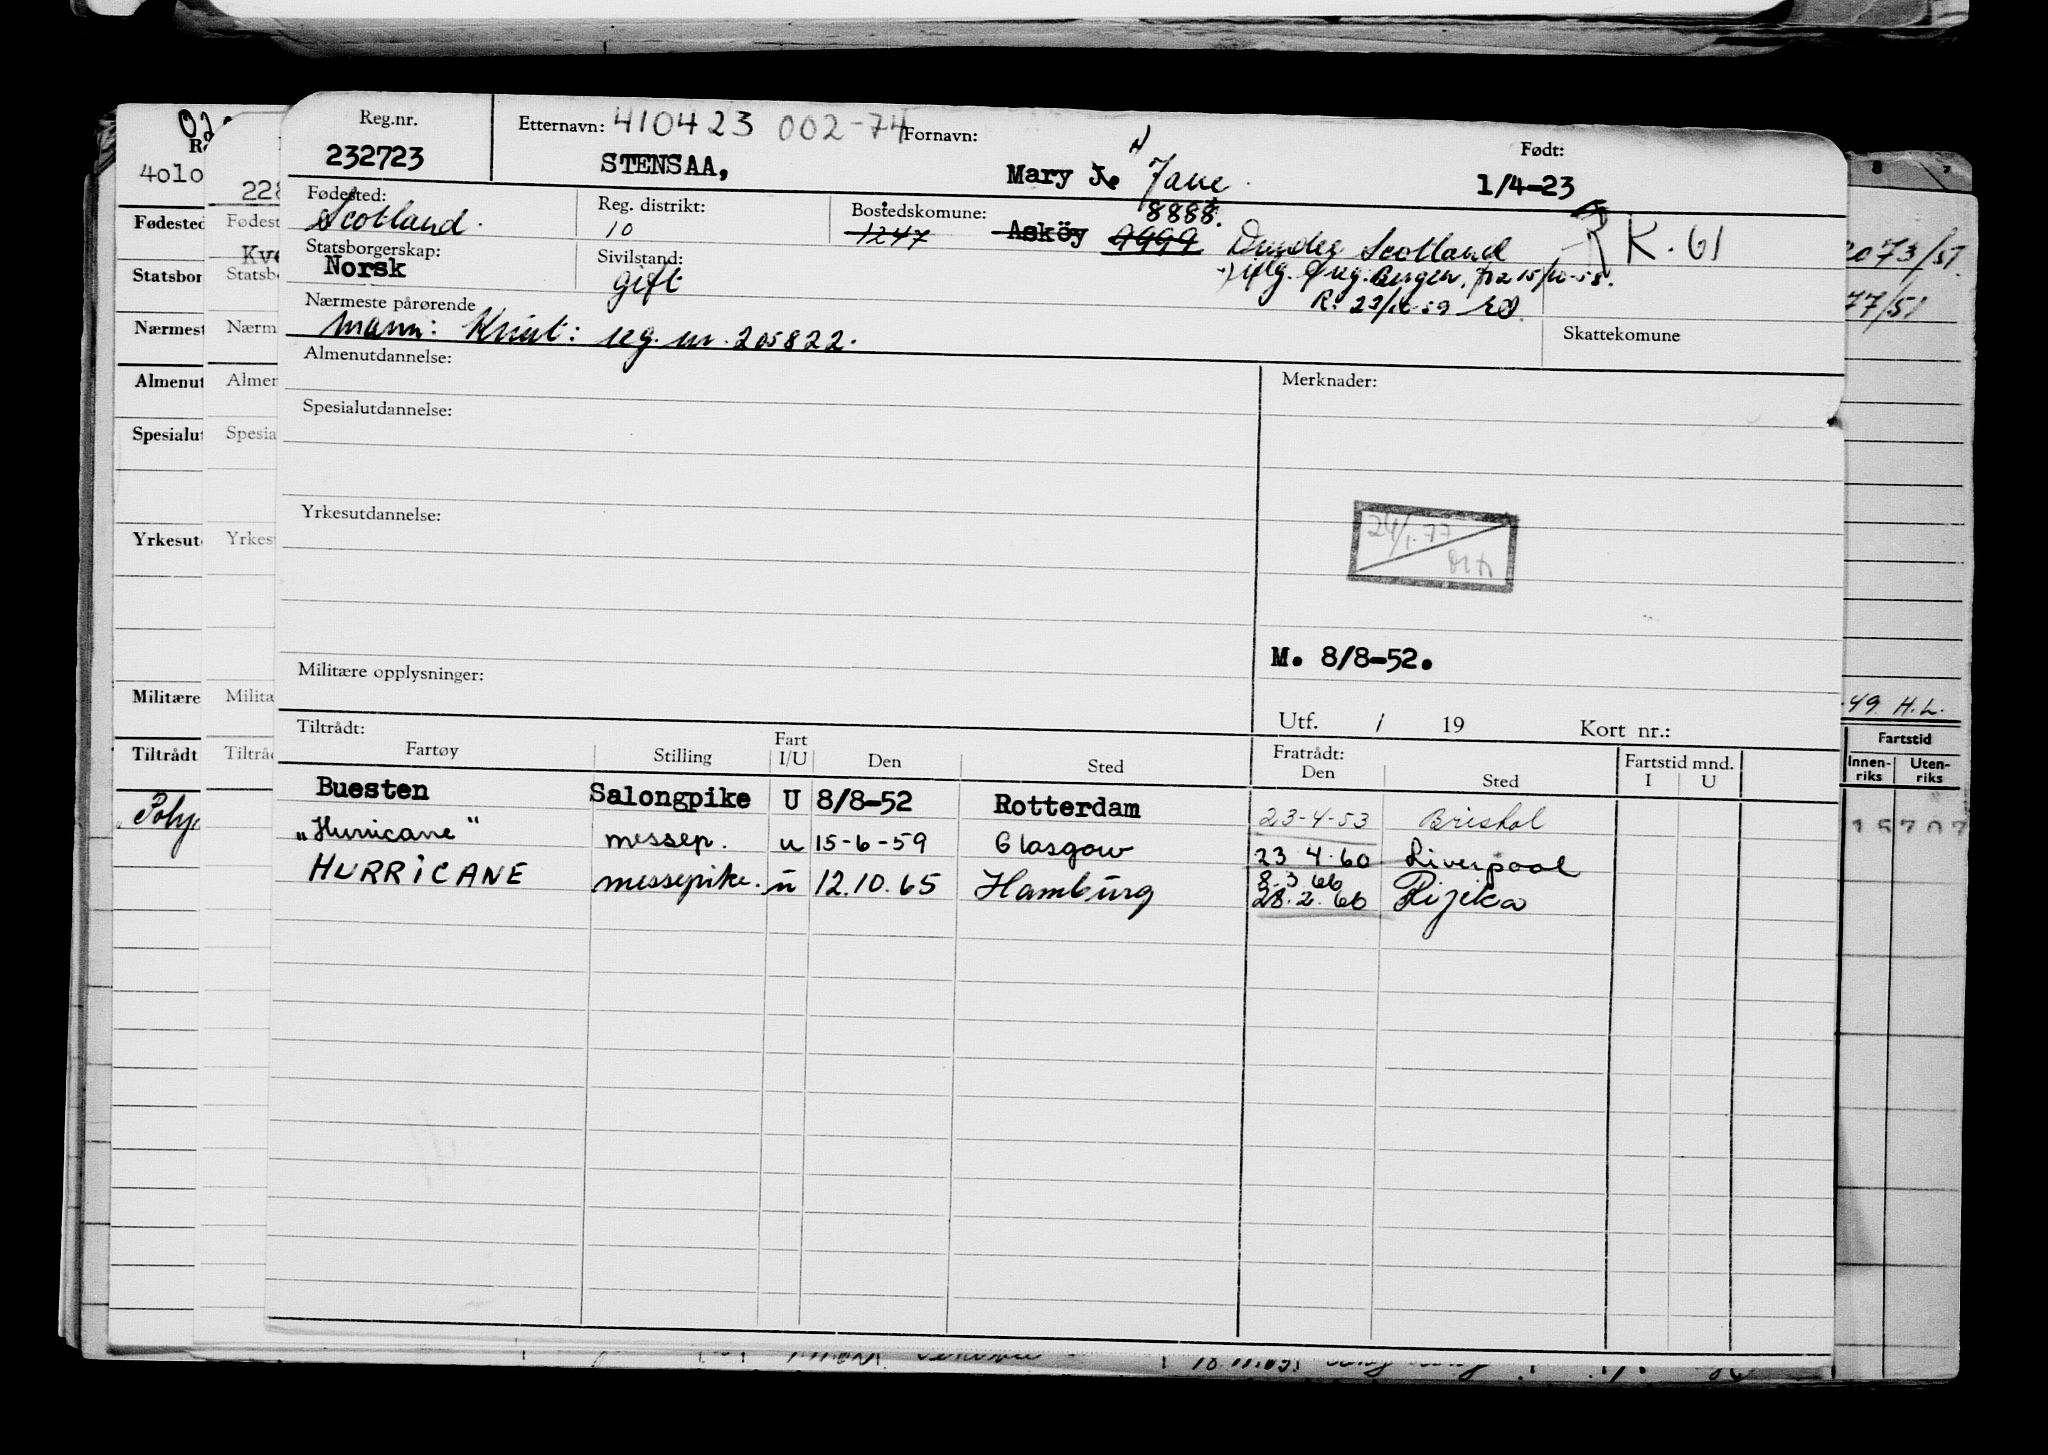 Reg.nr. Etternavn: 410423 002-74 Fornavn: Født:
232723 STENSAA, Mary J. Jane 1/4-23
Fødested: Reg. distrikt: Bostedskommune: 8888.
Scotland. 10 1247 Asköy 9999 Dundee Scotland RK. 61
Statsborgerskap: Sivilstand: Bergen, fra 15/10-58.
Norsk gift
Nærmeste pårørende
mann: Knut: reg. nr. 205822. Skattekomune
Almenutdannelse: Merknader:
Spesialutdannelse:
Yrkesutdannelse: 24/1.77
M. 8/8-52.
Militære opplysninger:
Utf. / 19 Kort nr.:
Tiltrådt: Fratrådt: Fartstid mnd.
Fartøy Stilling Fart I/U Den Sted Den Sted I U
Buesten Salongpike U 8/8-52 Rotterdam 23-4-53 Bristol
"Hurricane" messep. u 15-6-59 Glasgow 23 4.60 Liverpool
HURRICANE messepike. u 12.10.65 Hamburg 8.3 66
28.2.66 Rijeka
4010
228
Kve
Fødested Fødest
Statsbor Statsb
Nærmest Nærm
Almenut Almen
Spesialut Spesia
Yrkesut Yrkes
Militære Milita
Tiltrådt Tiltråd
Poly
2073/51.
77/51
49 H.L.
Fartstid
Innen-riks Uten-riks